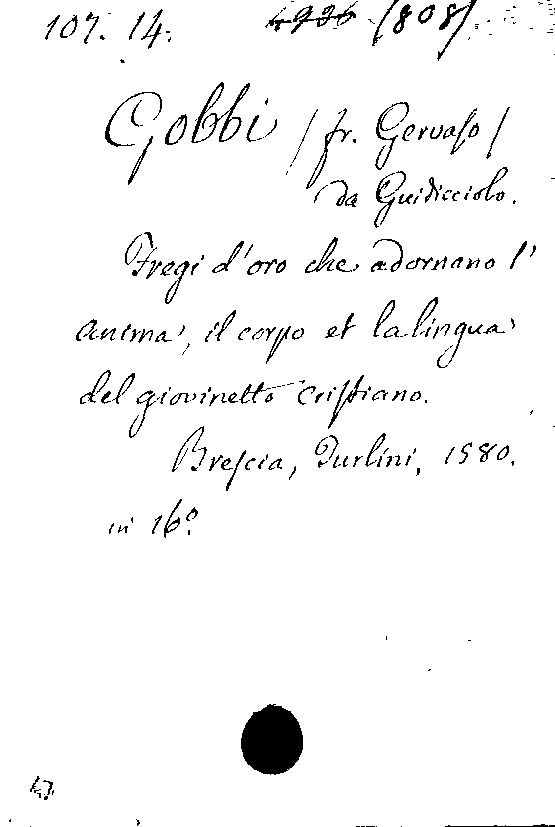 107. 14. 4936 /808/.
Gobbi /fr. Gervaso/
da Guidicciolo.
Fregi d'oro che adornano l'
anima, il corpo et la lingua
del giovinetto cristiano.
Brescia, Turlini, 1580.
in 16º